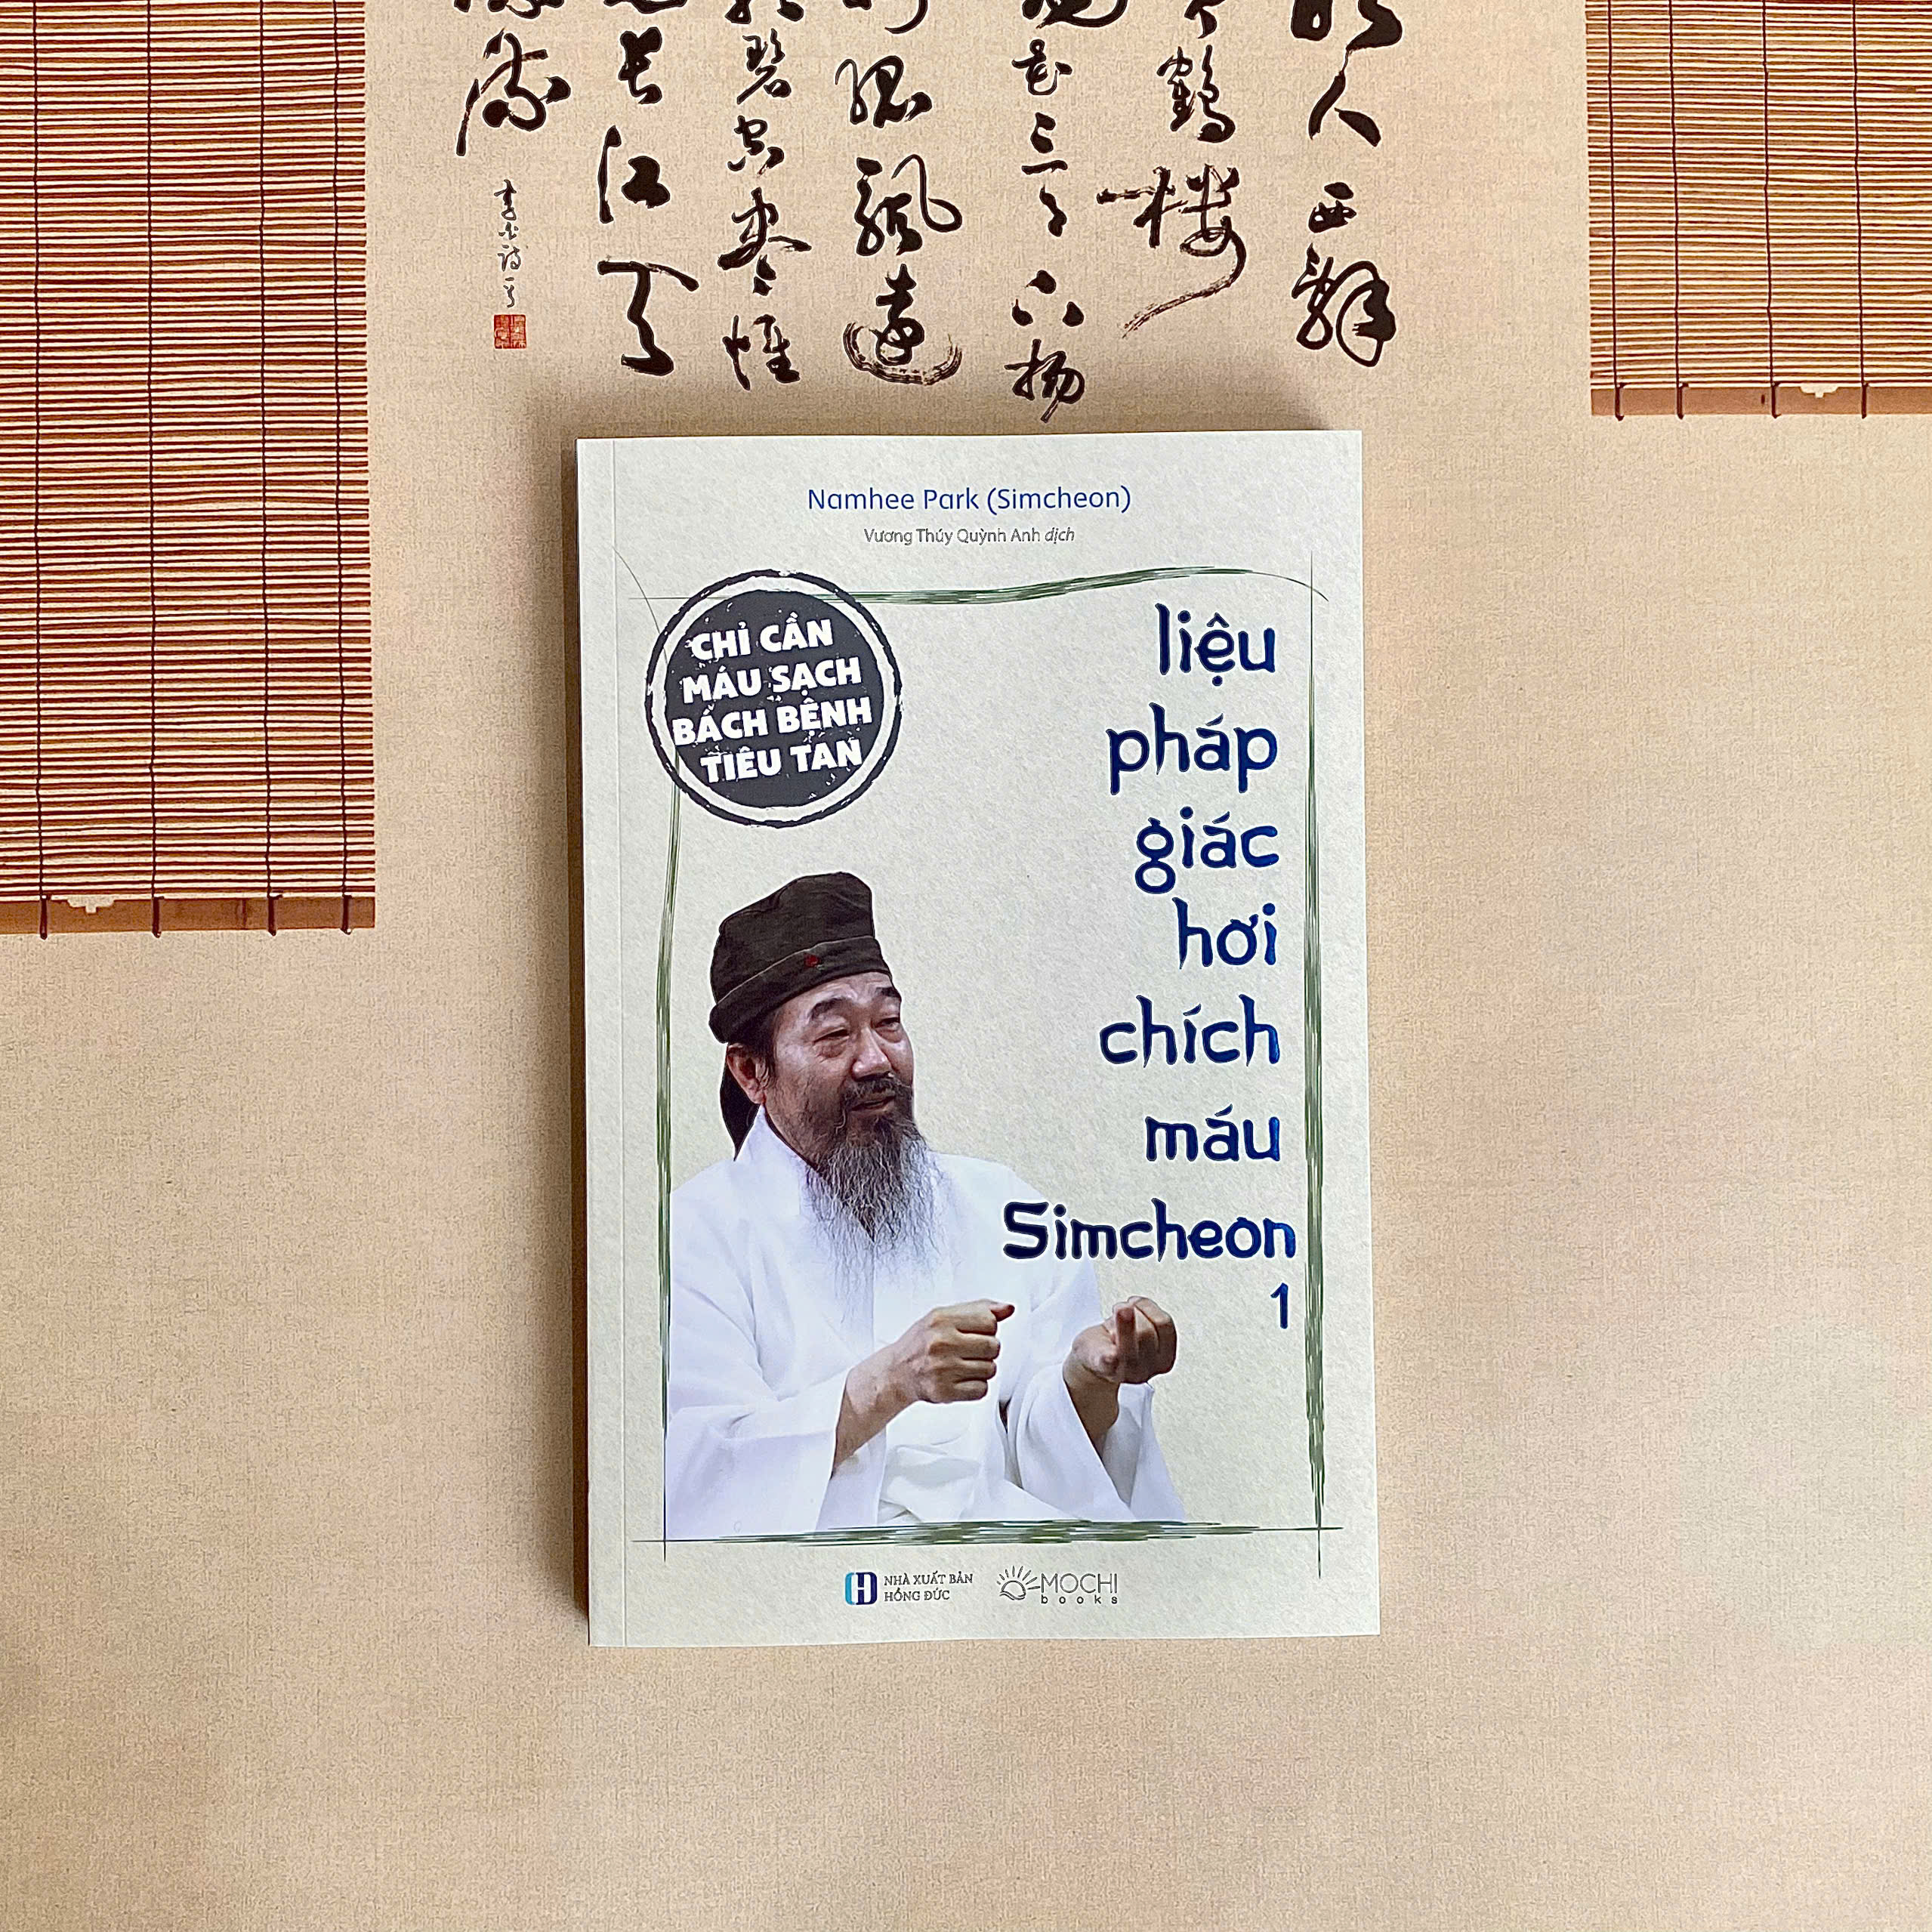 人西辭
鶴楼
花三月下扬
孤飒遠
碧空尽惟
长江天
流
李白詩一首
Namhee Park (Simcheon)
Vương Thúy Quỳnh Anh dịch
CHỈ CẦN
MÁU SẠCH
BÁCH BỆNH
TIÊU TAN
liệu
pháp
giác
hơi
chích
máu
Simcheon
1
NHÀ XUẤT BẢN
HỒNG ĐỨC
MOCHI
books